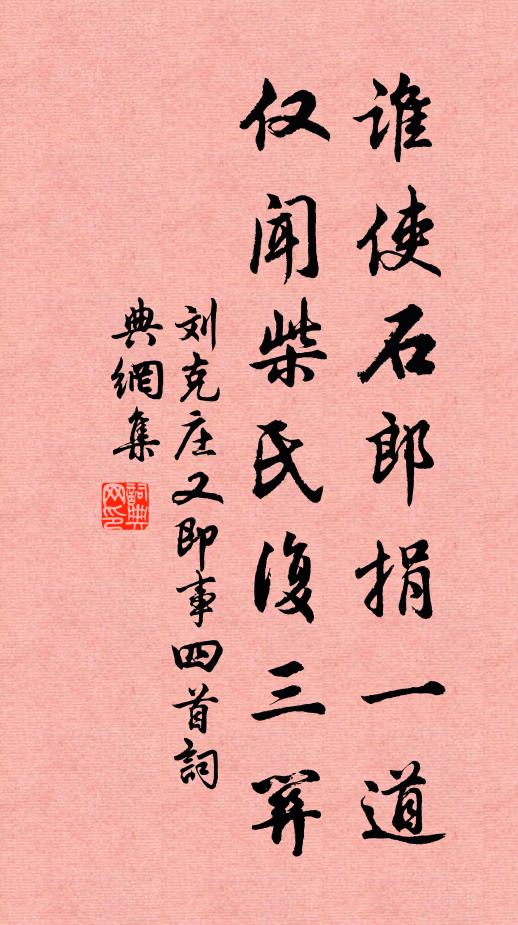 谁使石郎捐一道
仅闻柴氏復三关
刘克庄又即事四首詞
典網集
詞典
网印